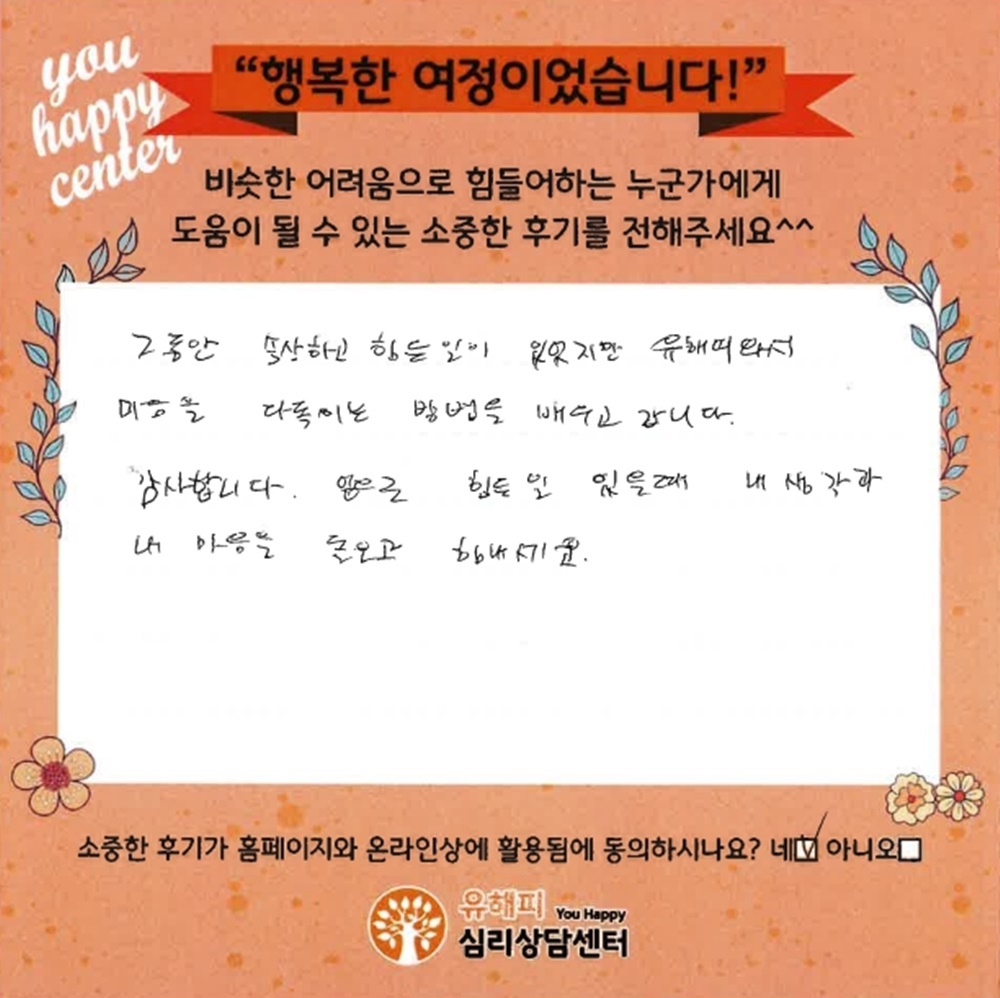 you
happy
center
“행복한 여정이었습니다!”
비슷한 어려움으로 힘들어하는 누군가에게
도움이 될 수 있는 소중한 후기를 전해주세요^^
그동안 속상하고 힘든일이 있었지만 유해피와서
마음을 다독이는 방법을 배우고 갑니다.
감사합니다. 앞으로 힘든일 있을때 내 생각과
내 마음을 돌보고
소중한 후기가 홈페이지와 온라인상에 활용됨에 동의하시나요? 네☑ 아니오☐
유해피 You Happy
심리상담센터